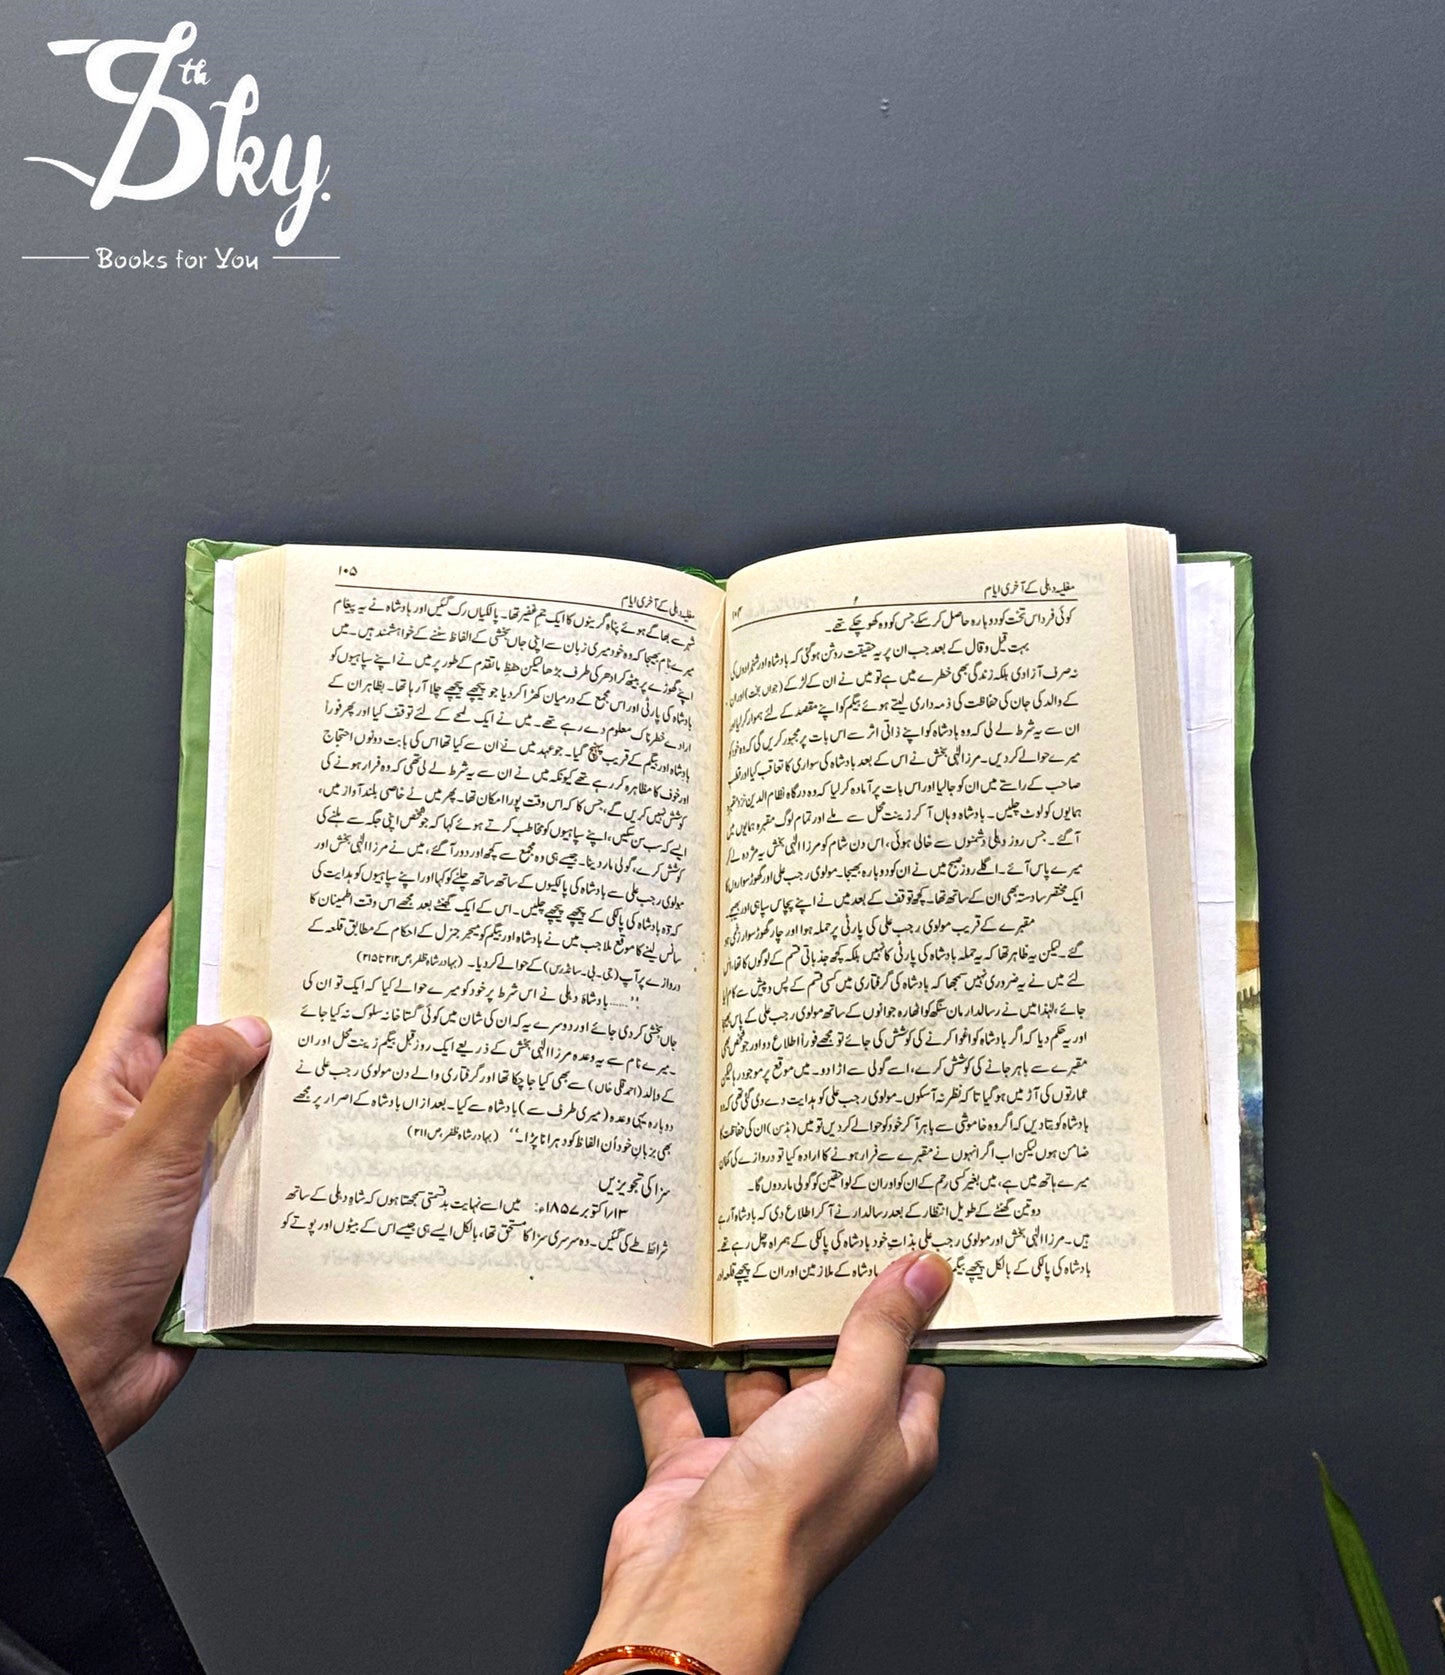 7th Sky.
Books for You
مغلیہ دہلی کے آخری ایام
۱۰۴
کوئی فرد اس تخت کو دوبارہ حاصل کر سکے جس کو وہ کھو چکے تھے۔
بہت قیل و قال کے بعد جب ان پر یہ حقیقت روشن ہوگئی کہ بادشاہ اور شہزادوں کی
نہ صرف آزادی بلکہ زندگی بھی خطرے میں ہے تو میں نے ان کے لڑکے (جواں بخت) اور ان
کے والد کی جان کی حفاظت کی ذمہ داری لیتے ہوئے بیگم کو اپنے مقصد کے لئے ہموار کر لیا اور
ان سے یہ شرط لے لی کہ وہ بادشاہ کو اپنے ذاتی اثر سے اس بات پر مجبور کریں گی کہ وہ خود کو
میرے حوالے کردیں۔ مرزا الٰہی بخش نے اس کے بعد بادشاہ کی سواری کا تعاقب کیا اور قطب
صاحب کے راستے میں ان کو جالیا اور اس بات پر آمادہ کر لیا کہ وہ درگاہ نظام الدین نزد مقبرہ
ہمایوں کو لوٹ چلیں۔ بادشاہ وہاں آ کر زینت محل سے ملے اور تمام لوگ مقبرہ ہمایوں میں
آگئے۔ جس روز دہلی دشمنوں سے خالی ہوئی، اس دن شام کو مرزا الٰہی بخش یہ مژدہ لے کر
میرے پاس آئے۔ اگلے روز صبح میں نے ان کو دوبارہ بھیجا۔ مولوی رجب علی اور گھوڑ سواروں کا
ایک مختصر سا دستہ بھی ان کے ساتھ تھا۔ کچھ توقف کے بعد میں نے اپنے پچاس سپاہی اور بھیجے۔
مقبرے کے قریب مولوی رجب علی کی پارٹی پر حملہ ہوا اور چار گھوڑ سوار زخمی ہو
گئے۔ لیکن یہ ظاہر تھا کہ یہ حملہ بادشاہ کی پارٹی کا نہیں بلکہ کچھ جذباتی قسم کے لوگوں کا تھا، اس
لئے میں نے یہ ضروری نہیں سمجھا کہ بادشاہ کی گرفتاری میں کسی قسم کے پس و پیش سے کام لیا
جائے، لہٰذا میں نے رسالدار مان سنگھ کو اٹھارہ جوانوں کے ساتھ مولوی رجب علی کے پاس بھیجا
اور یہ حکم دیا کہ اگر بادشاہ کو اغوا کرنے کی کوشش کی جائے تو مجھے فوراً اطلاع دو اور جو شخص بھی
مقبرے سے باہر جانے کی کوشش کرے، اسے گولی سے اڑا دو۔ میں موقع پر موجود رہا لیکن
عمارتوں کی آڑ میں ہوگیا تا کہ نظر نہ آسکوں۔ مولوی رجب علی کو ہدایت دے دی گئی تھی کہ وہ
بادشاہ کو بتا دیں کہ اگر وہ خاموشی سے باہر آ کر خود کو حوالے کردیں تو میں (ہڈسن) ان کی حفاظت کا
ضامن ہوں لیکن اب اگر انہوں نے مقبرے سے فرار ہونے کا ارادہ کیا تو دروازے کی کمان
میرے ہاتھ میں ہے، میں بغیر کسی رحم کے ان کو اور ان کے لواحقین کو گولی مار دوں گا۔
دو تین گھنٹے کے طویل انتظار کے بعد رسالدار نے آ کر اطلاع دی کہ بادشاہ آرہے
ہیں۔ مرزا الٰہی بخش اور مولوی رجب علی بذات خود بادشاہ کی پالکی کے ہمراہ چل رہے تھے۔
بادشاہ کی پالکی کے بالکل پیچھے بیگم بادشاہ کے ملازمین اور ان کے پیچھے قلعہ اور
۱۰۵
مغلیہ دہلی کے آخری ایام
شہر سے بھاگے ہوئے پناہ گزینوں کا ایک جم غفیر تھا۔ پالکیاں رک گئیں اور بادشاہ نے یہ پیغام
میرے نام بھیجا کہ وہ خود میری زبان سے اپنی جاں بخشی کے الفاظ سننے کے خواہشمند ہیں۔ میں
اپنے گھوڑے پر بیٹھ کر ادھر کی طرف بڑھا لیکن حفظِ ماتقدم کے طور پر میں نے اپنے سپاہیوں کو
بادشاہ کی پارٹی اور اس مجمع کے درمیان کھڑا کردیا جو پیچھے پیچھے چلا آرہا تھا۔ بظاہر ان کے
ارادے خطرناک معلوم دے رہے تھے۔ میں نے ایک لمحے کے لئے توقف کیا اور پھر فوراً
بادشاہ اور بیگم کے قریب پہنچ گیا۔ جو عہد میں نے ان سے کیا تھا اس کی بابت دونوں احتجاج
اور خوف کا مظاہرہ کر رہے تھے کیونکہ میں نے ان سے یہ شرط لے لی تھی کہ وہ فرار ہونے کی
کوشش نہیں کریں گے، جس کا کہ اس وقت پورا امکان تھا۔ پھر میں نے خاصی بلند آواز میں،
ایسے کہ سب سن سکیں، اپنے سپاہیوں کو مخاطب کرتے ہوئے کہا کہ جو شخص اپنی جگہ سے ہلنے کی
کوشش کرے، گولی مار دینا۔ جیسے ہی وہ مجمع سے کچھ اور دور آگئے، میں نے مرزا الٰہی بخش اور
مولوی رجب علی سے بادشاہ کی پالکیوں کے ساتھ ساتھ چلنے کو کہا اور اپنے سپاہیوں کو ہدایت کی
کہ وہ بادشاہ کی پالکی کے پیچھے پیچھے چلیں۔ اس کے ایک گھنٹے بعد مجھے اس وقت اطمینان کا
سانس لینے کا موقع ملا جب میں نے بادشاہ اور بیگم کو میجر جنرل کے احکام کے مطابق قلعہ کے
دروازے پر آپ (جی۔بی۔سانڈرس) کے حوالے کردیا۔ (بہادر شاہ ظفر، ص ۲۱۳ تا ۲۱۵)
”......بادشاہ دہلی نے اس شرط پر خود کو میرے حوالے کیا کہ ایک تو ان کی
جاں بخشی کردی جائے اور دوسرے یہ کہ ان کی شان میں کوئی گستاخانہ سلوک نہ کیا جائے
۔ میرے نام سے یہ وعدہ مرزا الٰہی بخش کے ذریعے ایک روز قبل بیگم زینت محل اور ان
کے والد (احمد قلی خاں) سے بھی کیا جا چکا تھا اور گرفتاری والے دن مولوی رجب علی نے
دوبارہ یہی وعدہ (میری طرف سے) بادشاہ سے کیا۔ بعد ازاں بادشاہ کے اصرار پر مجھے
بھی بزبانِ خود اُن الفاظ کو دہرانا پڑا۔“ (بہادر شاہ ظفر، ص ۲۱۱)
سزا کی تجویزیں
۱۳ / اکتوبر ۱۸۵۷ء: میں اسے نہایت بد قسمتی سمجھتا ہوں کہ شاہ دہلی کے ساتھ
شرائط طے کی گئیں۔ وہ سرسری سزا کا مستحق تھا، بالکل ایسے ہی جیسے اس کے بیٹوں اور پوتے کو